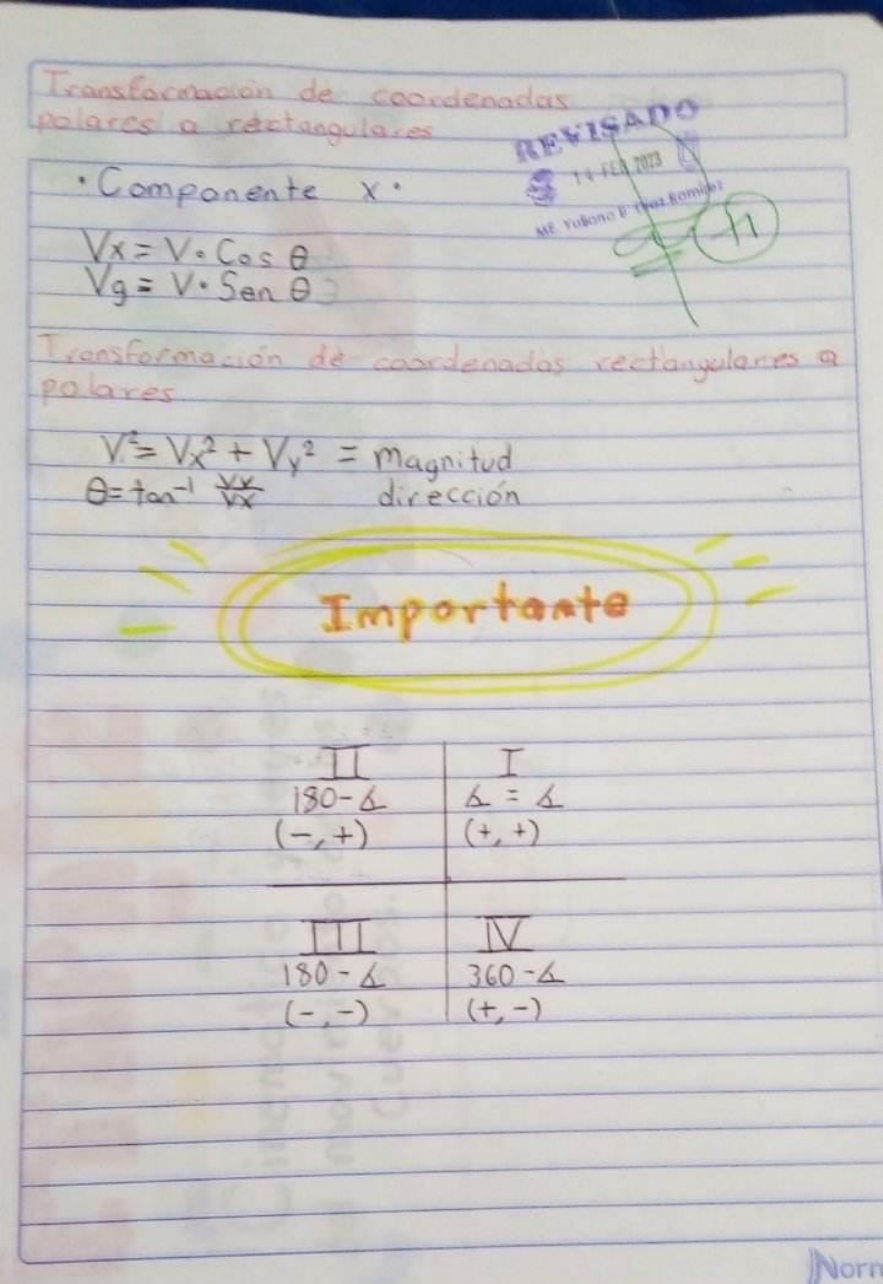 Transformación de coordenadas
polares a rectangulares
REVISADO
14 FEB 2023
· Componente x ·
Vx = V · Cos θ
Vy = V · Sen θ
+1
Transformación de coordenadas rectangulares a
polares
V² = Vx² + Vy² = magnitud
θ = tan⁻¹ Vy/Vx dirección
Importante
II I
180-∡ ∡ = ∡
(-, +) (+, +)
III IV
180-∡ 360-∡
(-, -) (+, -)
Norm